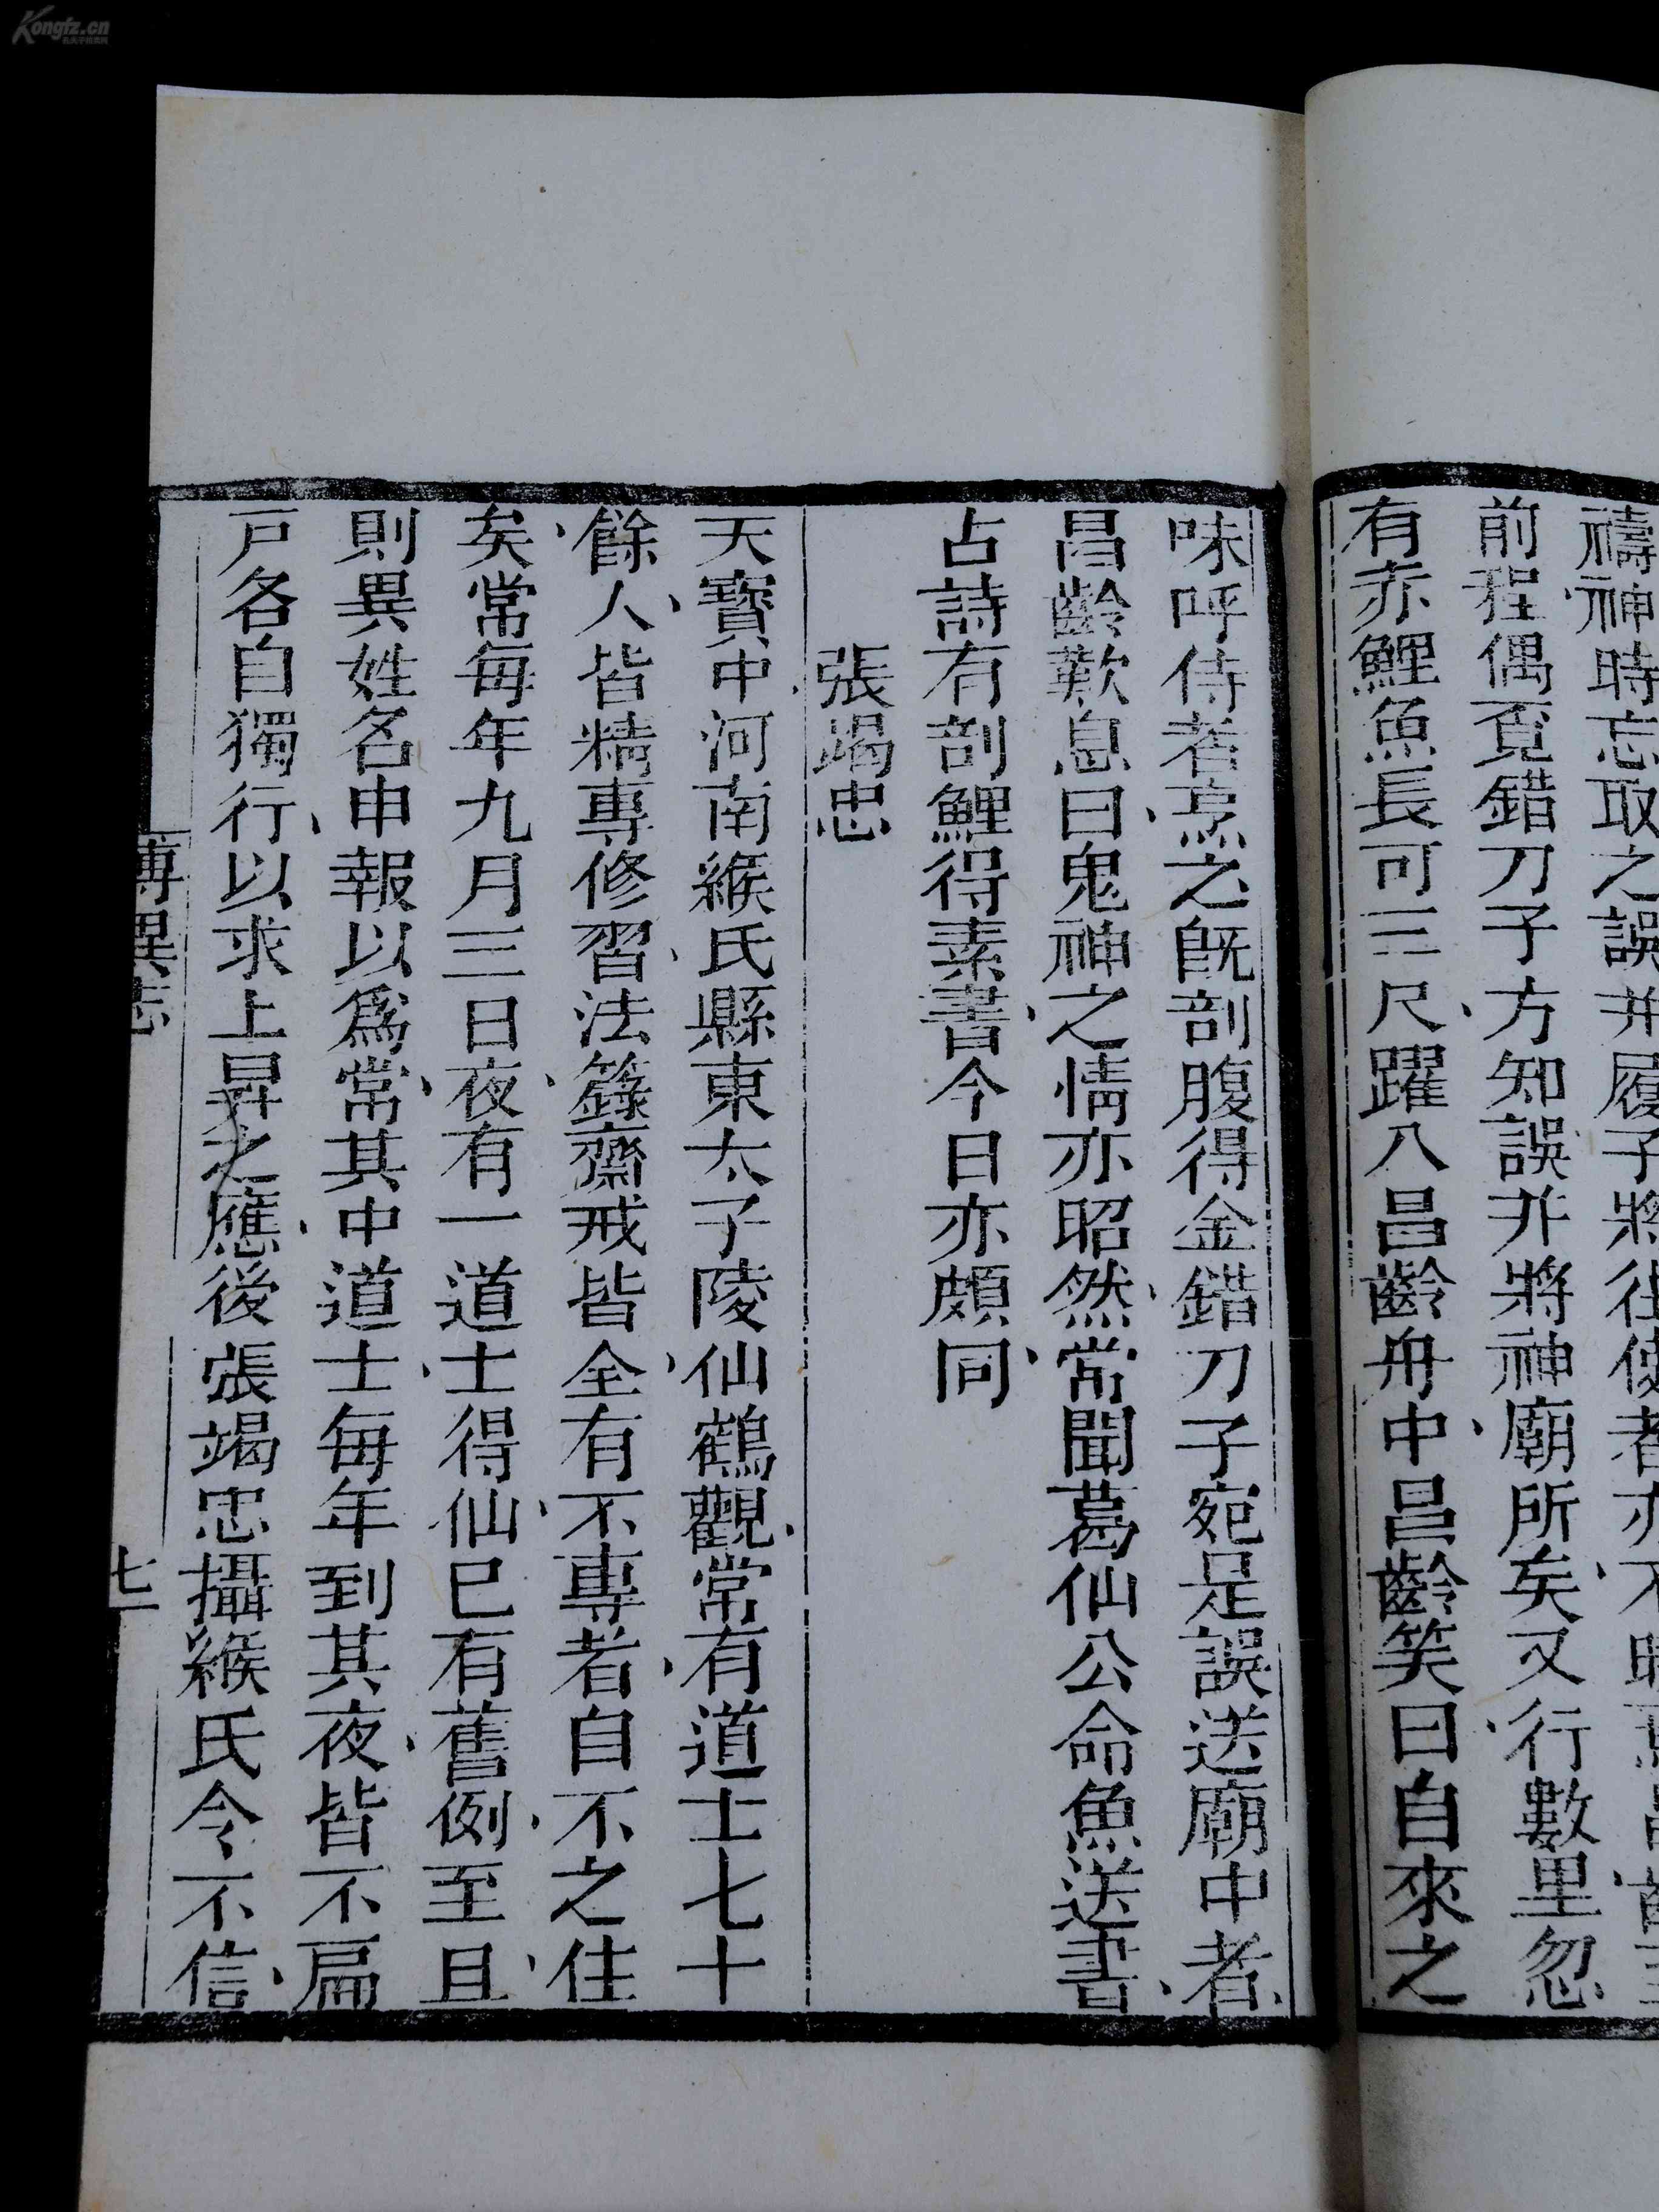 禱神時忘取之誤并履子將往使者亦不
前程偶覔錯刀子方知誤并將神廟所矣又行數里忽
有赤鯉魚長可三尺躍入昌齡舟中昌齡笑曰自來之
味呼侍者烹之旣剖腹得金錯刀子宛是誤送廟中者
昌齡歎息曰鬼神之情亦昭然常聞葛仙公命魚送書
占詩有剖鯉得素書今日亦頗同
張竭忠
天寶中河南緱氏縣東太子陵仙鶴觀常有道士七十
餘人皆精專修習法籙齋戒皆全有不專者自不之住
矣常每年九月三日夜有一道士得仙已有舊例至旦
則異姓名申報以爲常其中道士每年到其夜皆不扃
戸各自獨行以求上昇之應後張竭忠攝緱氏令不信
博異志
七
Kongfz.cn